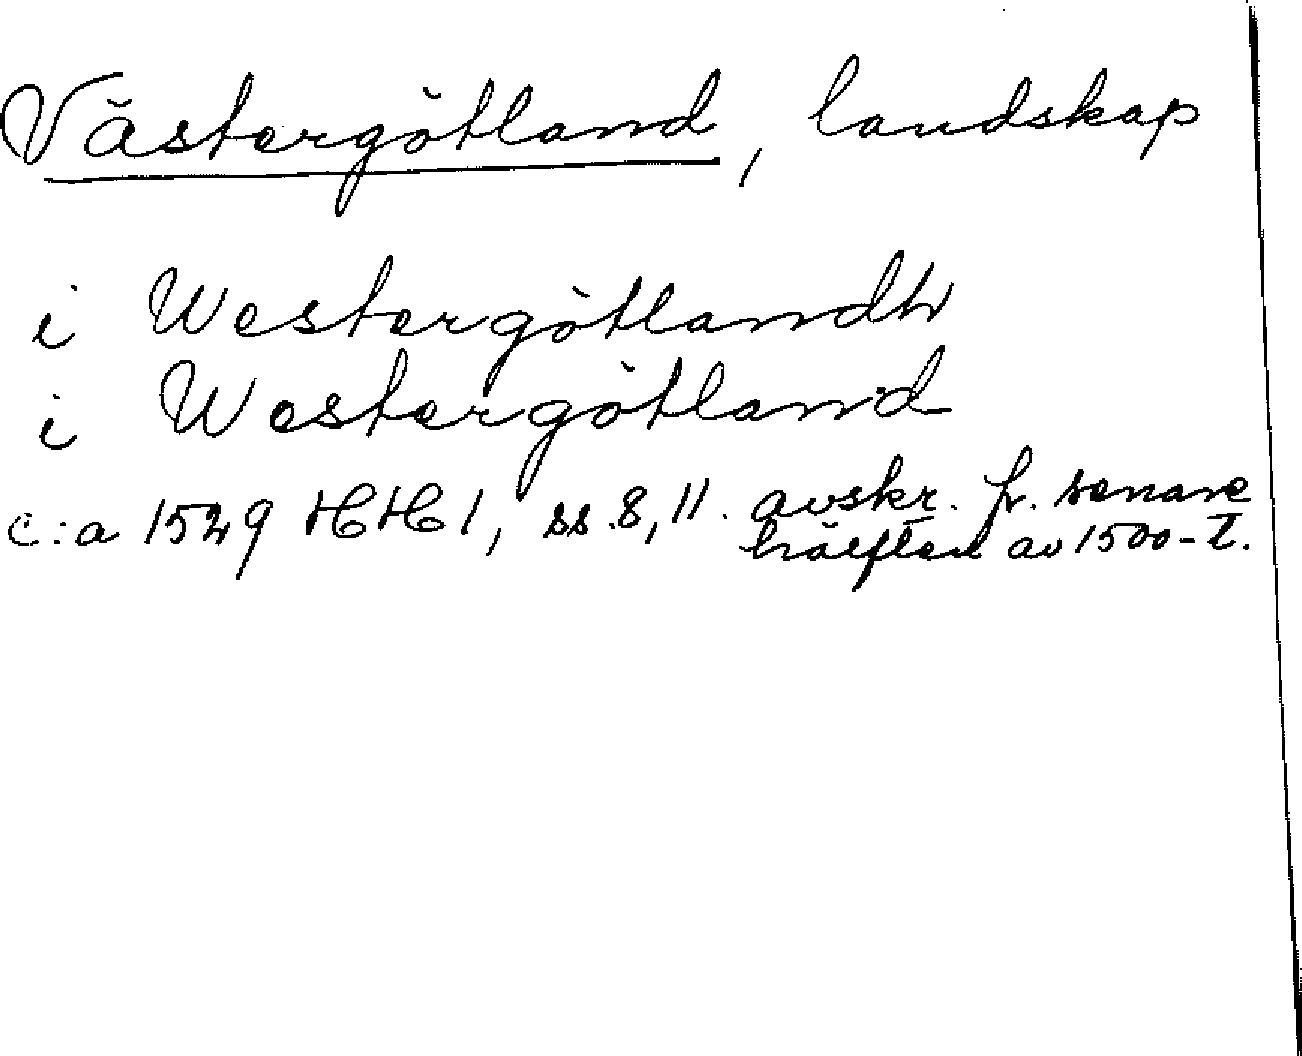 Västergötland, landskap
i Westergötlandh
i Westergötland
c:a 1529 HH 1, ss. 8, 11. avskr. fr. senare
hälften av 1500-t.